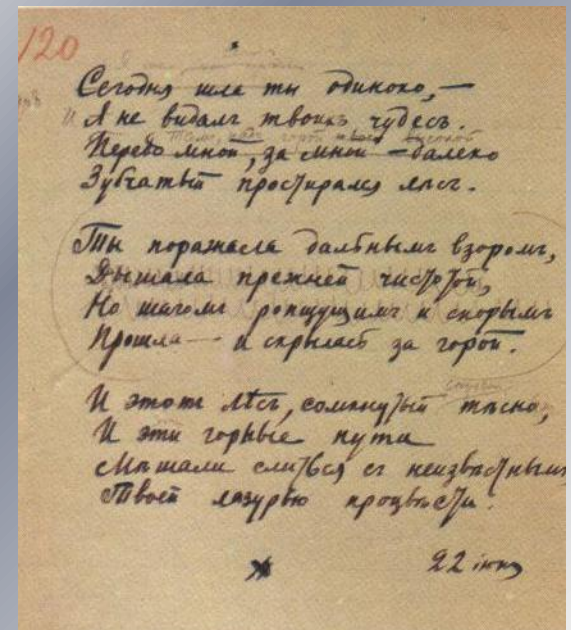 120
Сегодня шла ты одиноко, —
Я не видалъ твоихъ чудесъ.
Тамъ, надъ горой твоей высокой
Передо мной, за мной — далеко
Зубчатый простирался лѣсъ.
Ты поражала дальнымъ взоромъ,
Дышала прежней чистотой,
Но шагомъ ропщущимъ и скорымъ
Прошла — и скрылась за горой.
И этотъ лѣсъ, сомкнутый тѣсно,
И эти горные пути
Мѣшали слиться съ неизвѣстнымъ
Твоей лазурью процвѣсти.
22 іюня